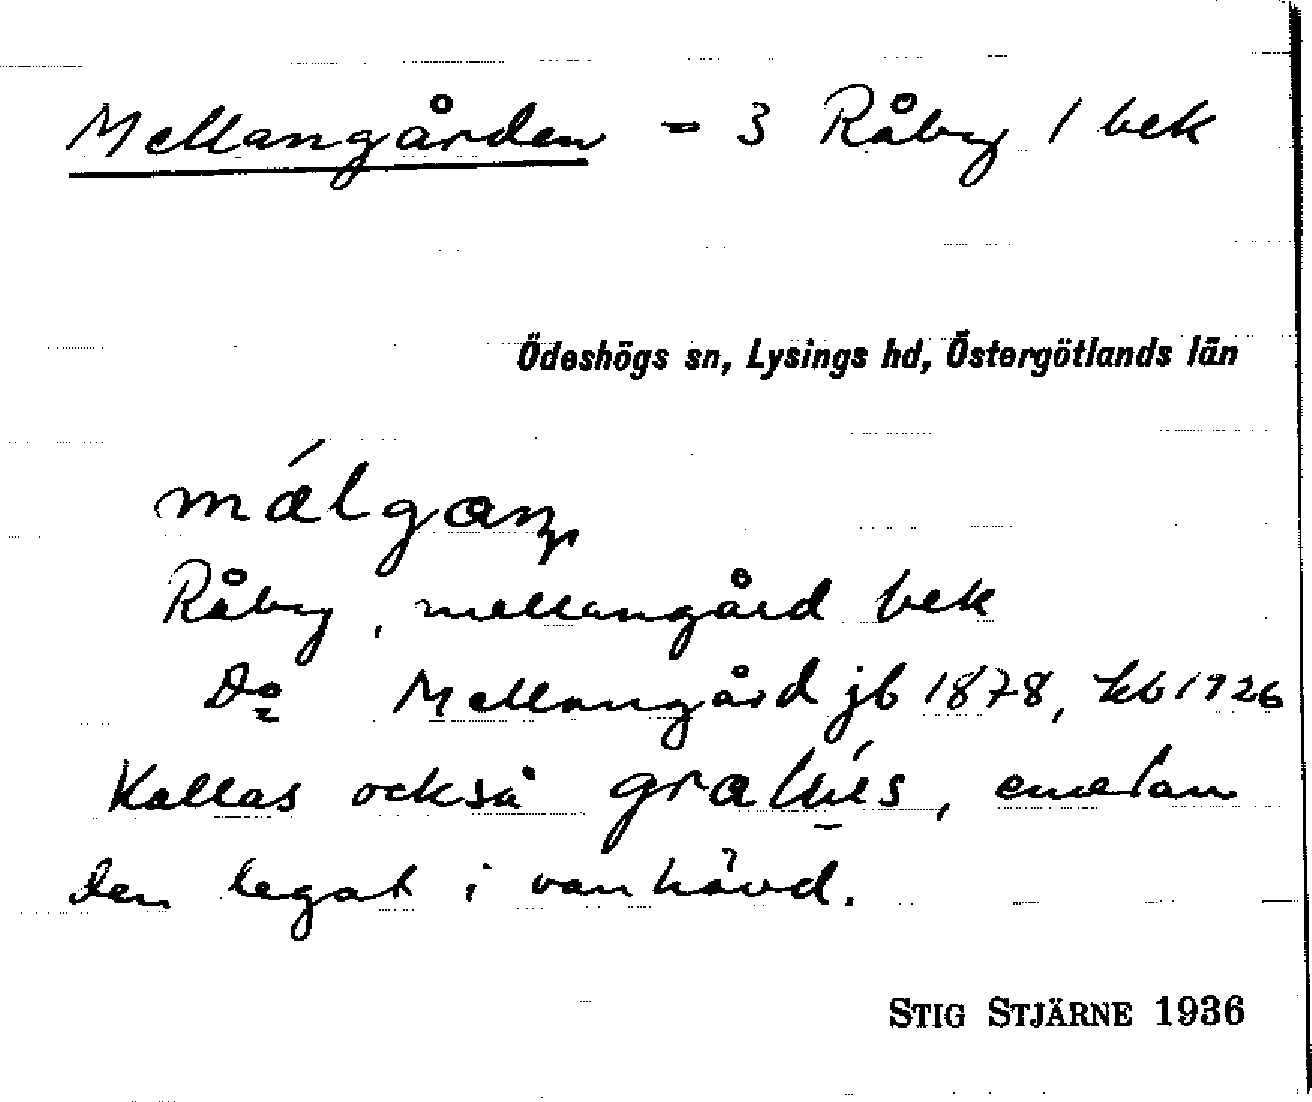 Mellangården = 3 Råby 1 bek
Ödeshögs sn, Lysings hd, Östergötlands län
Råby, mellangård bek
Do Mellangård jb 1878, kb 1926
Kallas också emedan
den legat i vanhävd.
STIG STJÄRNE 1936